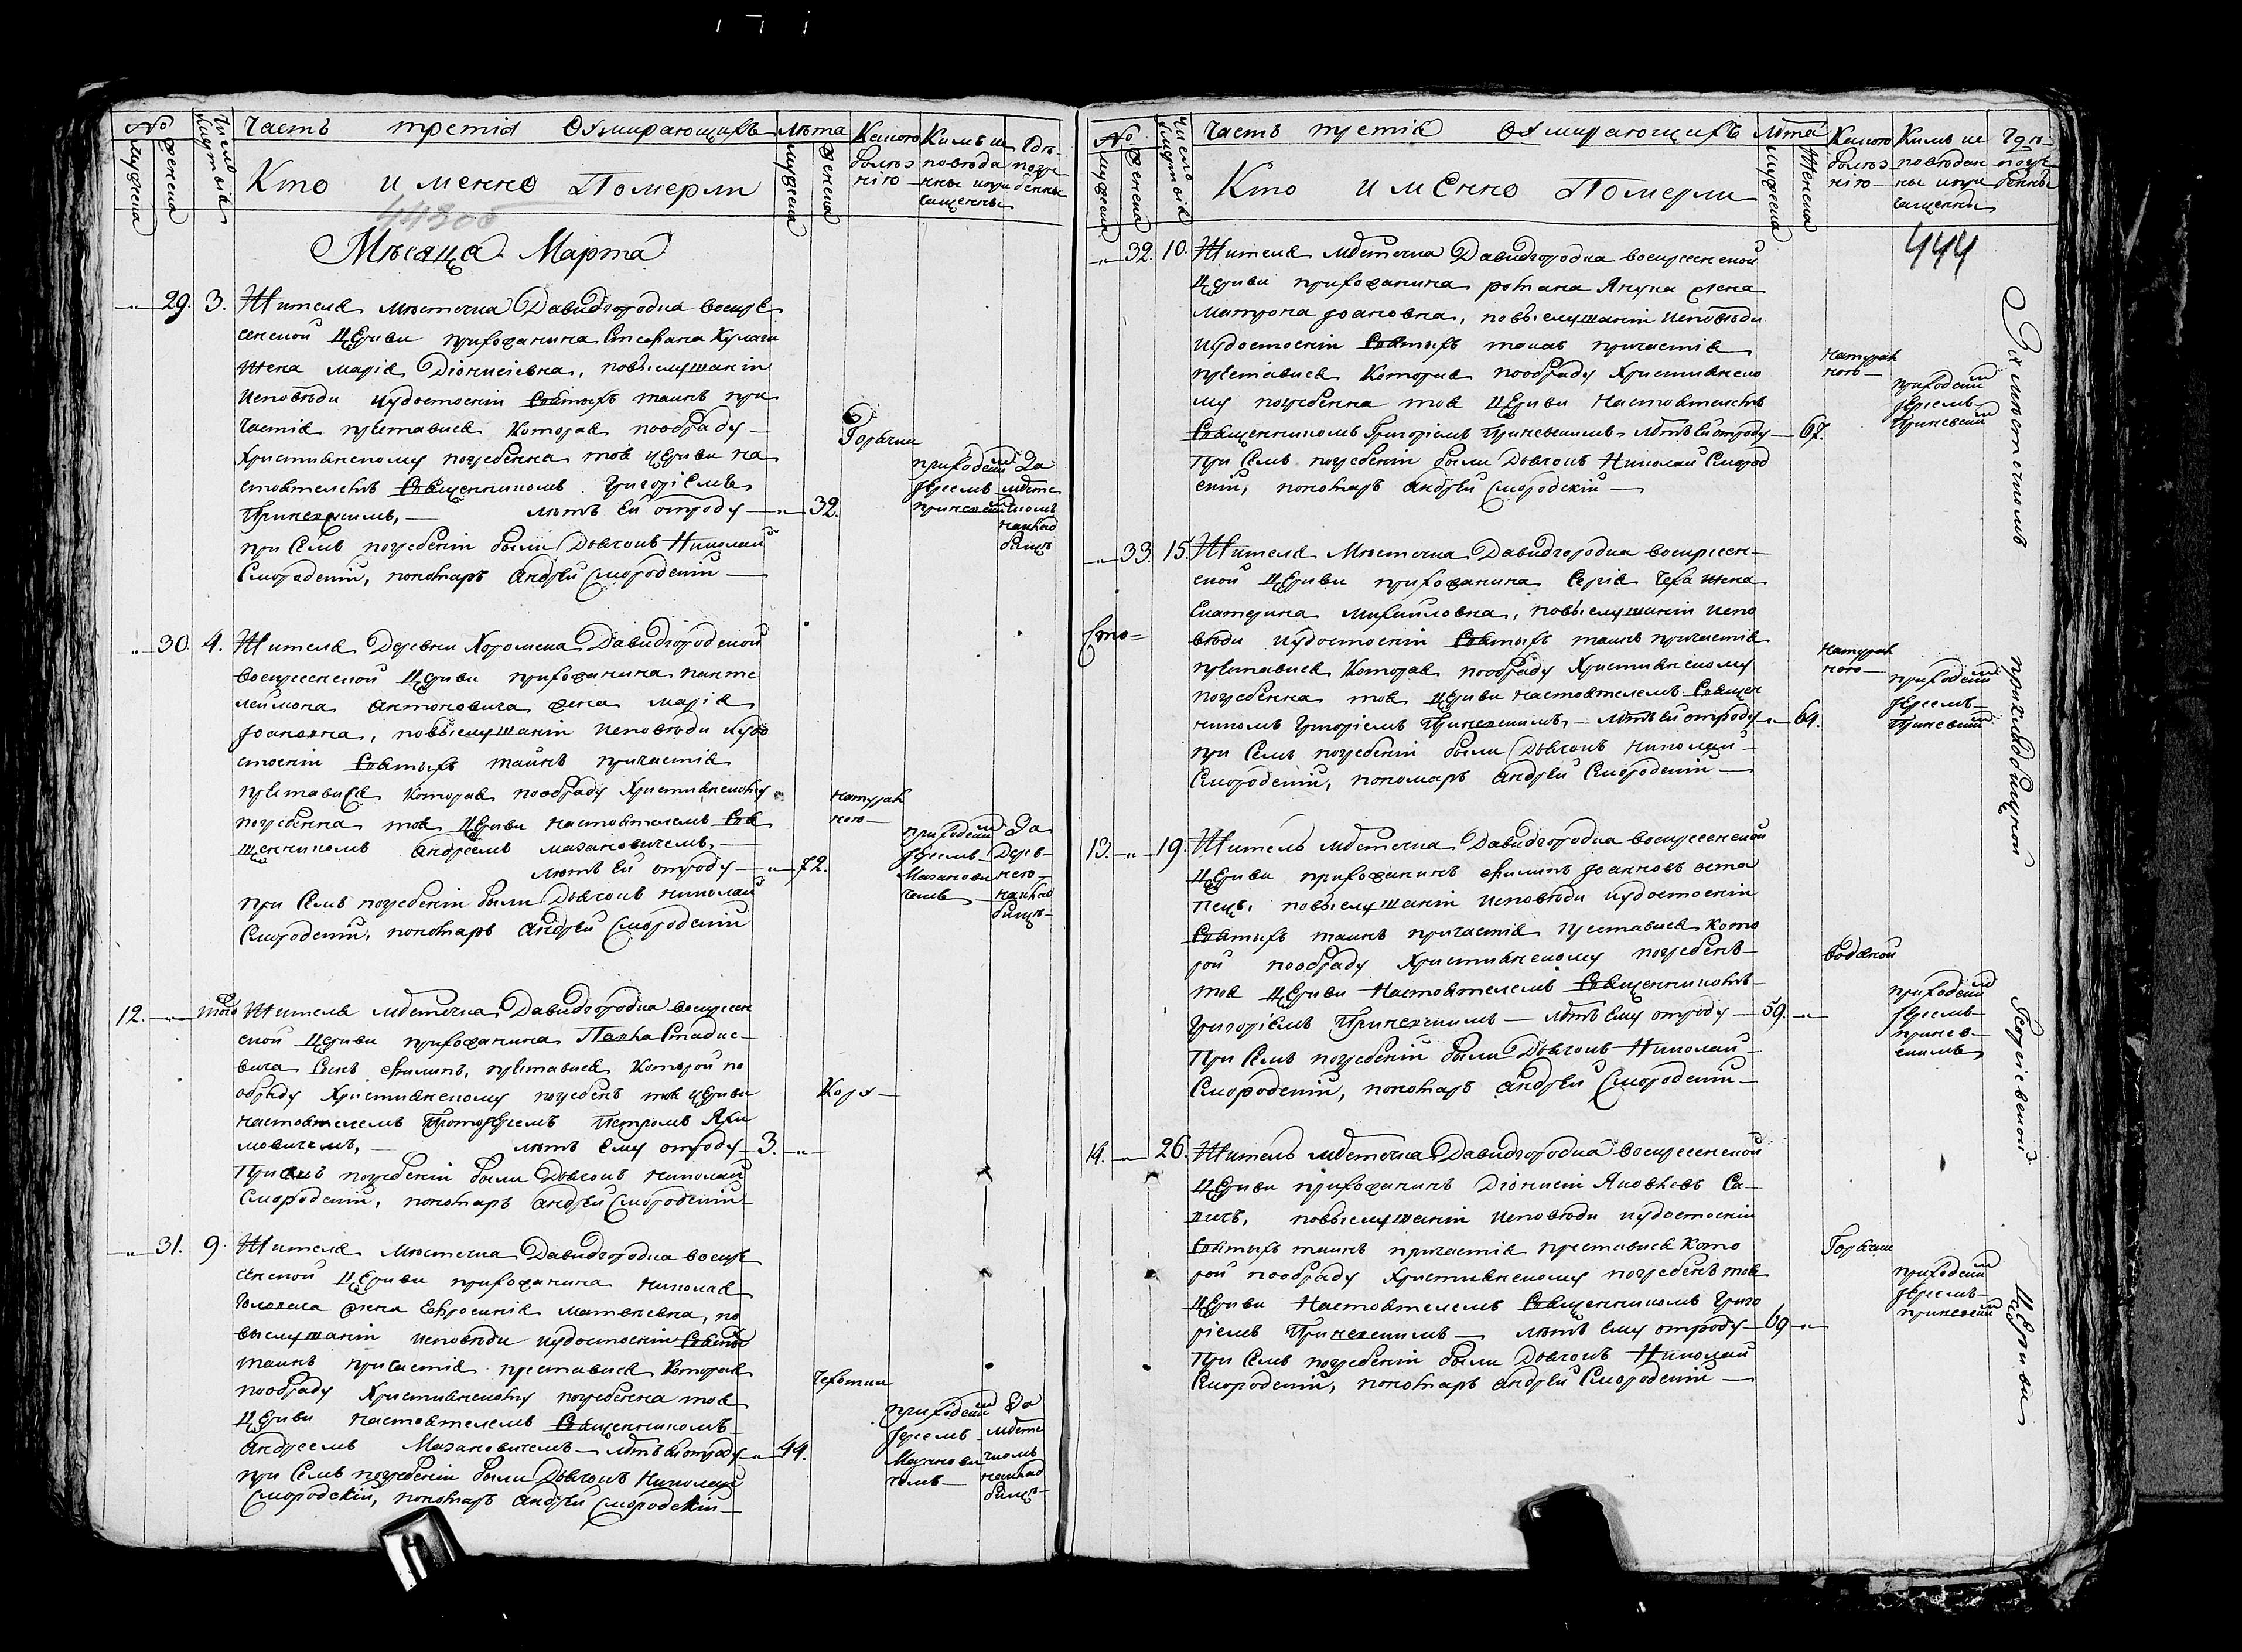 №
мужеска
женска
Число
смертвія
Часть третія О умирающихъ
Кто именно Померли
Лѣта
мужеска
женска
Какою
болѣз
нію
Кимъ и
повѣда
нны и прі
чащенны
Гдѣ
погре
бенны
Мѣсяца Марта
29. 3. Жителя мѣстечка Давидгородка воскре
сенской Церкви прихожанина Стефана Кулаги
жена марія Діонисіевна, повыслушаніи
исповѣди иудостоеніи Святыхъ таинъ при
частія преставися которая пообряду
Христианскому погребенна тоя церкви на
стоятелемъ Священникомъ Григоріемъ
Приневскимъ, — лѣтъ ей отроду — 32.
при семъ погребеніи были Дьячокъ Николай
Смородскій, пономарь Андрей Смородскій —
Горячки
приходским
Іереемъ
приневским
За
мѣсте
чкомъ
накляд
бищѣ
30. 4. Жителя Деревни Хоромска Давидгородской
воскресенской Церкви прихожанина панте
леймона Антоновича жена марія
Іоановна, повыслушаніи исповѣди иудо
стоеніи Святыхъ таинъ причастія
преставися которая пообряду Христианскому
погребенна тоя Церкви настоятелемъ Свя
щенникомъ Андреемъ мазановичемъ, —
лѣтъ ей отроду — 72.
при семъ погребеніи были Дьячокъ николай
Смородскій, пономарь Андрей Смородскій
натураль
ною —
приходским
Іереемъ
Мазанови
чемъ
За
Дерев
нею
накляд
бищѣ
12. того Жителя мѣстечка Давидгородка воскресен
ской Церкви прихожанина Павла Стадис
вича Сынъ филипъ, преставися которой по
обряду Христианскому погребенъ тоя церкви
настоятелемъ Протоіереемъ Петромъ Яки
мовичемъ, — лѣтъ ему отроду — 3.
При семъ погребеніи были Дьячокъ николай
Смородскій, пономарь Андрей Смородскій
Коръ —
31. 9. Жителя мѣстечка Давидгородка воскре
сенской Церкви прихожанина николая
жена Ефросинія матвиевна, по
выслушаніи исповѣди иудостоеніи Святыхъ
таинъ причастія преставися которая
пообряду Христианскому погребенна тоя
Церкви настоятелемъ Священникомъ
Андреемъ Мазановичемъ — лѣтъ ей отроду — 44.
при семъ погребеніи были Дьячокъ Николай
Смородскій, пономарь Андрей Смородскій —
Чехотки
приходским
Іереемъ
Мазанови
чемъ
За
мѣсте
чкомъ
накляд
бищѣ
№
мужеска
женска
Число
смертвія
Часть третія О умирающихъ
Кто именно Померли
Лѣта
мужеска
Женска
Какою
болѣз
нію
Кимъ ис
повѣдан
ны и при
чащенны
Гдѣ
погре
бенны
444
32. 10. Жителя мѣстечка Давидгородка воскресенской
Церкви прихожанина романа Янука жена
матрона Іоановна, повыслушаніи исповѣди
иудостоеніи Святыхъ таинъ причастія
преставися которая пообряду Христианско
му погребенна тоя Церкви настоятелемъ
Священникомъ Григоріемъ Приневскимъ — лѣтъ ей отроду — 67.
При семъ погребеніи были Дьячокъ Николай Смород
скій, пономарь Андрей Смородскій —
натураль
ною —
приходским
Іереемъ
Приневским
33. 15. Жителя Мѣстечка Давидгородка воскресен
ской Церкви прихожанина Сергія Чеха жена
Екатерина михайловна, повыслушаніи испо
вѣди иудостоеніи Святыхъ таинъ причастія
преставися которая пообряду Христианскому
погребенна тоя Церкви настоятелемъ Священ
никомъ Григоріемъ Приневскимъ, — лѣтъ ей отроду — 69.
при семъ погребеніи были Дьячокъ николай
Смородскій, пономарь Андрей Смородскій —
натураль
ною —
приходским
Іереемъ
Приневским
13. 19. Житель мѣстечка Давидгородка воскресенской
Церкви прихожанинъ филипъ Іоанновъ оста
пецъ, повыслушаніи исповѣди иудостоеніи
Святыхъ таинъ причастія преставися кото
рой пообряду Христианскому погребенъ
тоя Церкви Настоятелемъ Священникомъ
Григоріемъ Приневскимъ — лѣтъ ему отроду — 59.
При семъ погребеніи были Дьячокъ Николай
Смородскій, пономарь Андрей Смородскій —
водяной
приходским
Іереемъ
принев
скимъ
14. 26. Житель мѣстечка Давидгородка воскресенской
Церкви прихожанинъ Діонисій Яковлевъ Са
повыслушаніи исповѣди иудостоеніи
Святыхъ таинъ причастія преставися кото
рой пообряду Христианскому погребенъ тоя
Церкви Настоятелемъ Священникомъ Григо
ріемъ Приневскимъ — лѣтъ ему отроду — 69
При семъ погребеніи были Дьячокъ Николай
Смородскій, пономарь Андрей Смородскій —
Горячки
приходским
Іереемъ
приневским
За мѣстечкомъ прикладбищной Георгіевской Церкви